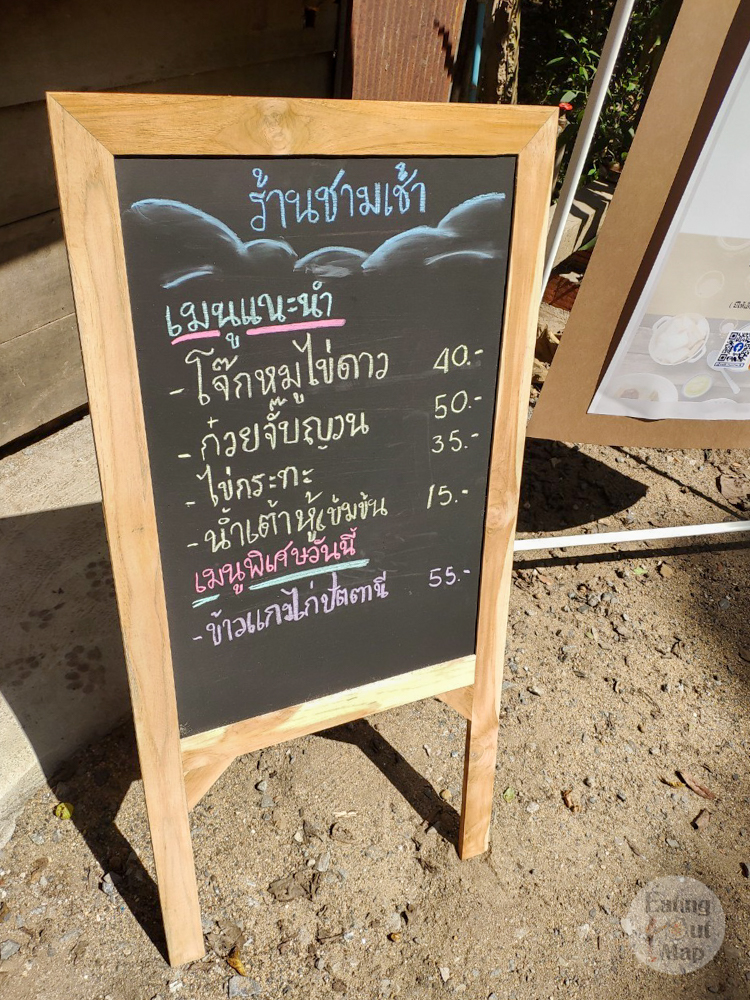 ร้านชามเช้า
เมนูแนะนำ
- โจ๊กหมูไข่ดาว 40.-
- ก๋วยจั๊บญวน 50.-
- ไข่กระทะ 35.-
- น้ำเต้าหู้เข้มข้น 15.-
เมนูพิเศษวันนี้
- ข้าวแกงไก่ปัตตานี 55.-
Eating Out Map